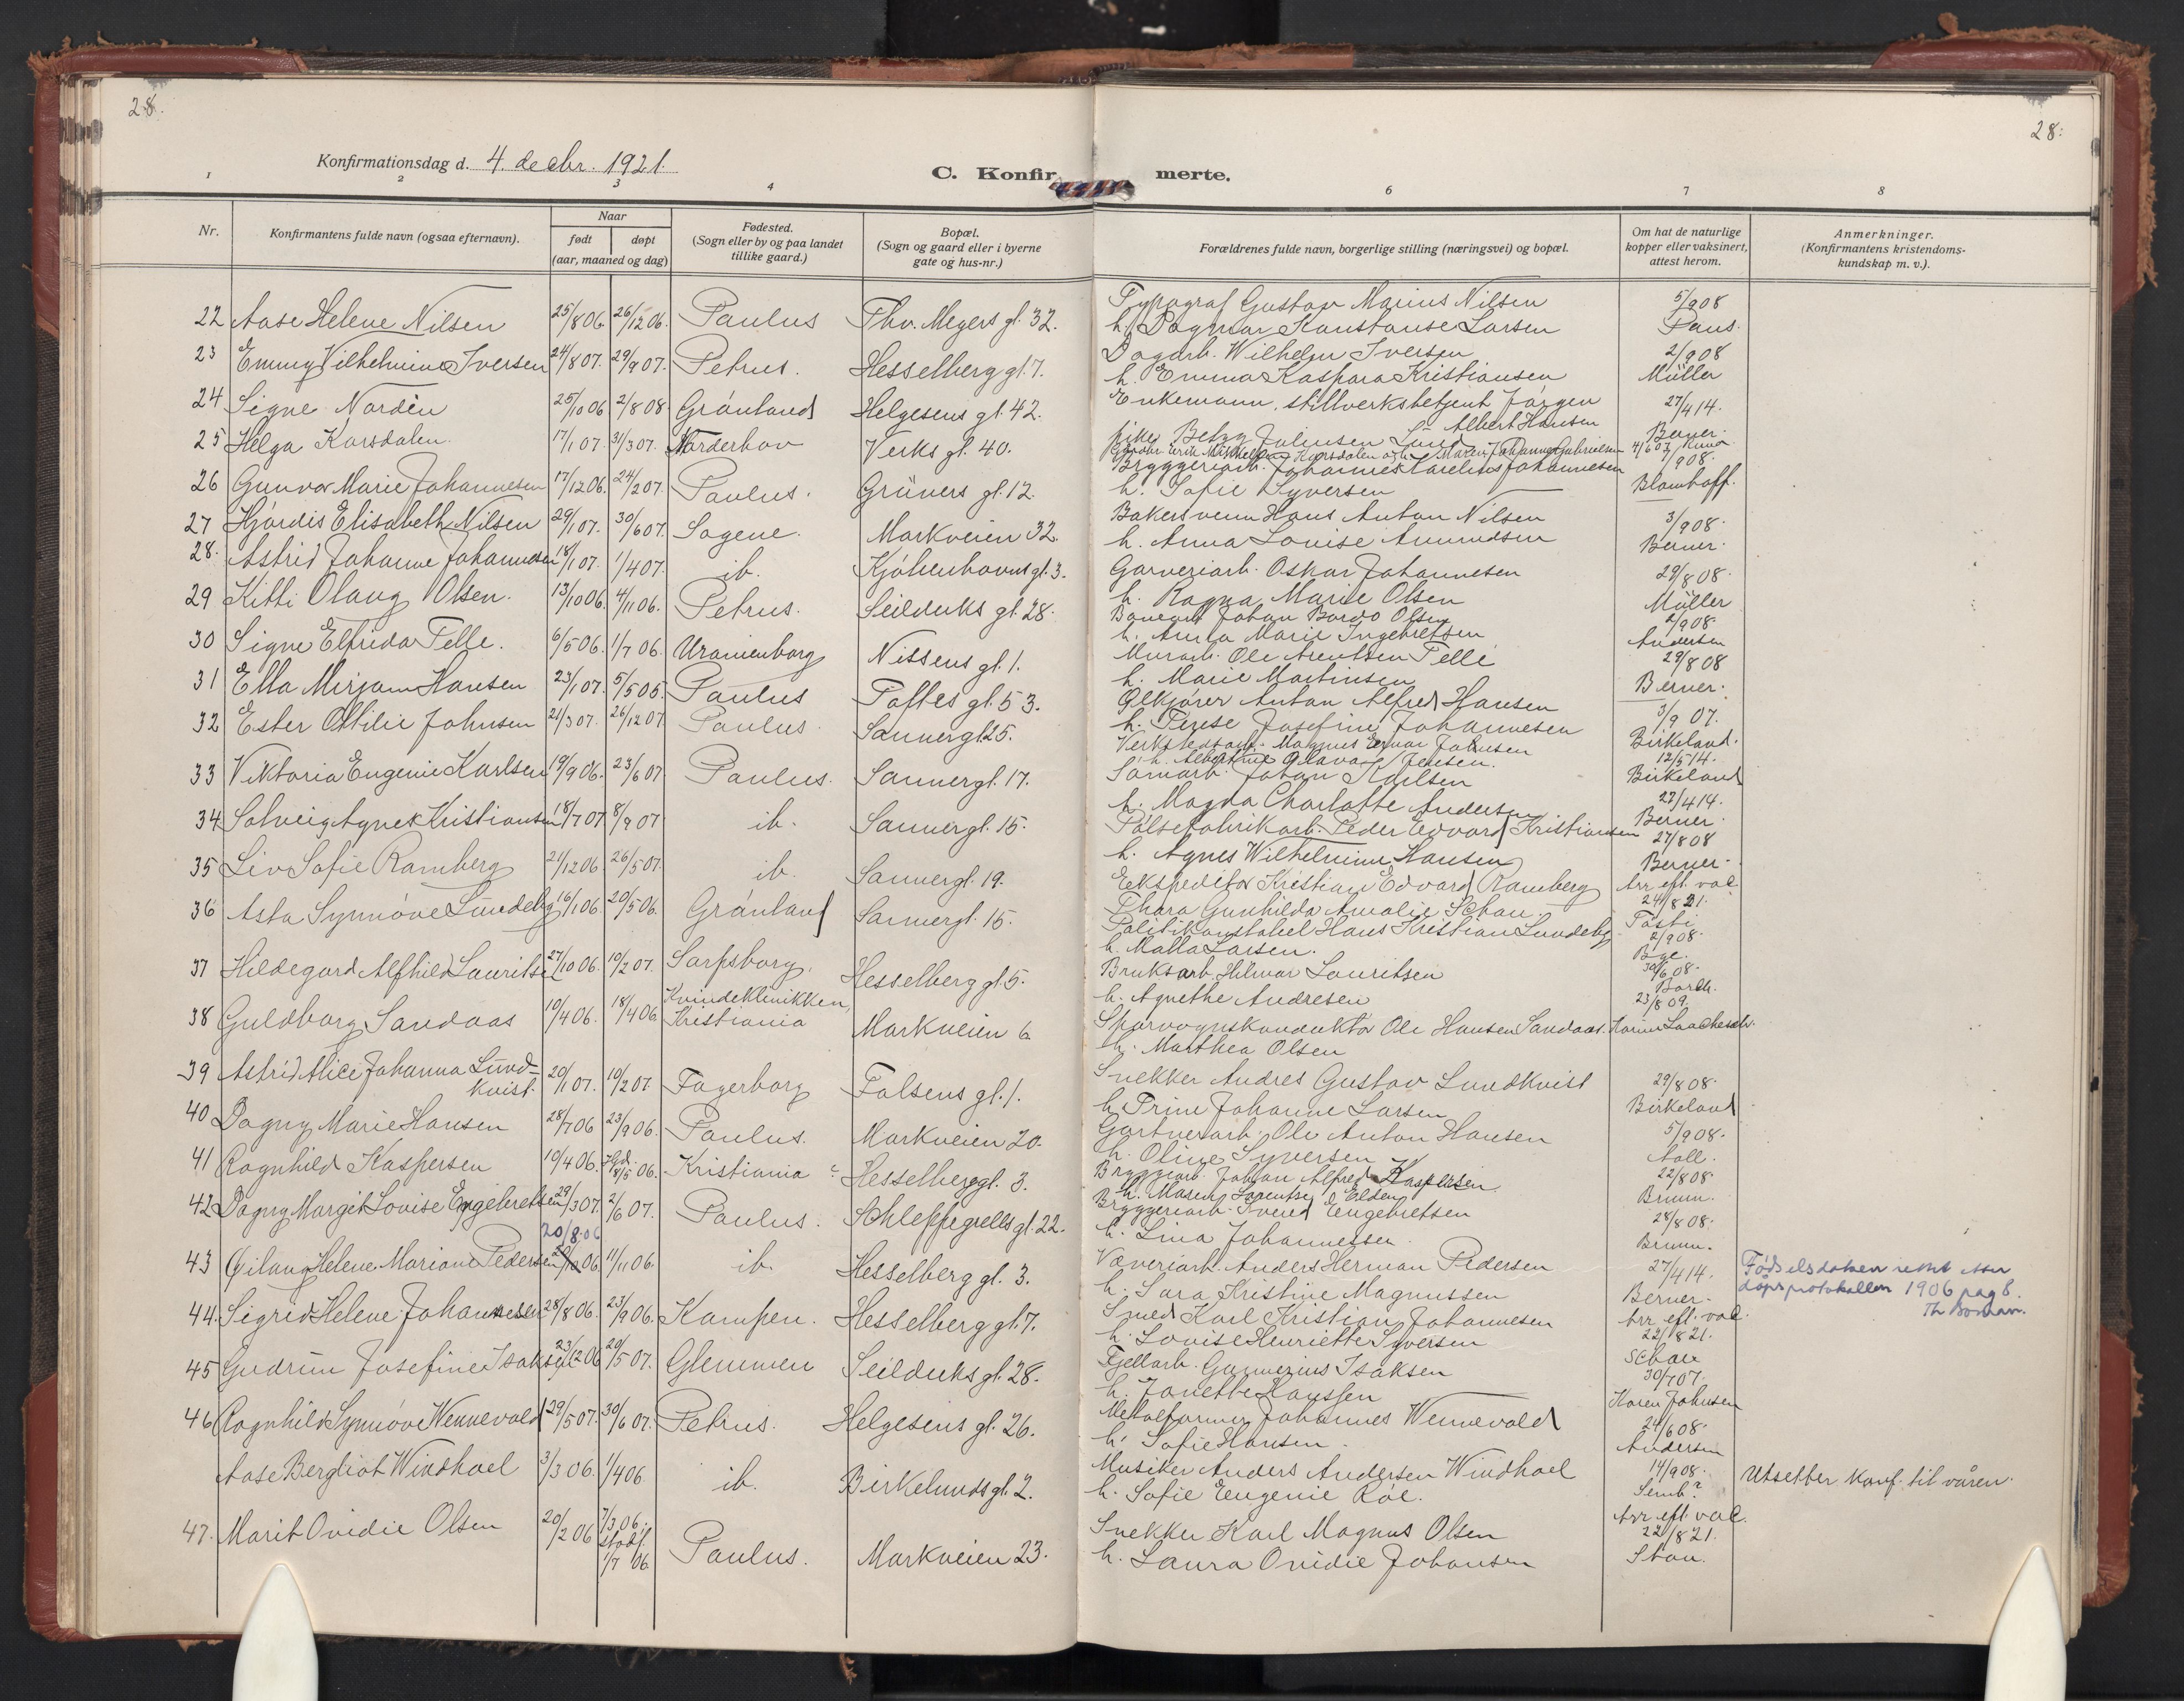 28.
28.
Konfirmationsdag d. 4. decbr. 1921.
C. Konfirmerte.
1 2 3 4 6 7 8
Nr.
Konfirmantens fulde navn (ogsaa efternavn).
Naar
født døpt
(aar, maaned og dag)
Fødested.
(Sogn eller by og paa landet
tillike gaard.)
Bopæl.
(Sogn og gaard eller i byerne
gate og hus-nr.)
Forældrenes fulde navn, borgerlige stilling (næringsvei) og bopæl.
Om hat de naturlige
kopper eller vaksinert,
attest herom.
Anmerkninger.
(Konfirmantens kristendoms-
kundskap m. v.).
22 Aase Helene Nilsen 25/8 06. 26/12 06. Paulus Thv. Meyers gt. 32. Typograf Gustav Marius Nilsen 5/9 08
h. Dagmar Konstanse Larsen Paus.
23 Emmy Vilhelmine Iversen 24/8 07. 29/9 07. Petrus. Hesselberg gt. 7. Dagarb. Wilhelm Iversen 2/9 08
h. Emma Kaspara Kristiansen Müller
24 Signe Nordèn 25/10 06 2/8 08 Grønland Helgesens gt. 42. Enkemann, stillverksbetjent Jørgen 27/4 14.
Albert Hansen
pike Betzy Julensen Lund Berner.
25 Helga Korsdalen. 17/1 07. 31/3 07. Norderhov Verks gt. 40. Korsdalen Maren Johanne Gabrielsen 4/6 07
26 Gunvor Marie Johannesen 17/12 06. 24/2 07. Paulus. Grüners gt. 12. Bryggeriarb. Johannes Johannesen /9 08.
h. Sofie Syversen Blomhoff.
27 Hjørdis Elisabeth Nilsen 29/1 07. 30/6 07. Sagene. Markveien 32. Bakersvenn Hans Anton Nilsen 3/9 08.
h. Anna Louise Amundsen Berner.
28. Astrid Johanne Johannesen 18/1 07. 1/4 07. ib. Kjøbenhavns gt. 3. Garveriarb. Oskar Johannesen 29/8 08.
h. Ragna Marie Olsen Müller
29 Kitti Olaug Olsen. 13/10 06. 4/11 06. Petrus. Seilduks gt. 28. Johan Olsen 2/9 08
h. Anna Marie Ingebretsen Andersen
30 Signe Elfrida Telle. 6/5 06. 1/7 06. Uranienborg Nissens gt. 1. Murarb. Ole Arentsen Telle 29/8 08
h. Marie Martinsen Berner.
31 Ella Mirjam Hansen 23/1 07. 5/5 06. Paulus Toftes gt. 53. Ølkjører Anton Alfred Hansen 3/9 07.
h. Terese Josefine Johannesen Birkeland.
32 Ester Ottilie Johnsen 21/3 07. 26/12 07 Paulus Sannergt 25. Verkstedsarb. Magnus Johnsen 12/5 14.
h. Albertine Olava Jensen. Birkeland
33 Viktoria Eugenie Karlsen 19/9 06. 23/6 07 Paulus. Sannergt. 17. Sømarb. Johan Karlsen 27/4 14.
h. Magda Charlotte Andersen Berner.
34 Solveig Agnes Kristiansen 18/7 07 8/9 07 ib. Sannergt. 15. Pølsefabrikarb. Peder Edvard Kristiansen 27/8 08
h. Agnes Wilhelmine Hansen Berner.
35 Liv Sofie Ramberg 21/12 06. 26/5 07. ib. Sannergt. 19. Ekspeditør Kristian Edvard Ramberg Arr eft. vac
Thora Gunhilda Amalie Schau. 24/8 21.
36 Asta Synnøve Lundeby 16/1 06. 20/5 06. Grønland Sannergt. 15. Politikonstabel Hans Kristian Lundeby 2/9 08.
h. Malla Larsen. Bye.
37 Hildegard Alfhild Lauritsen 27/10 06. 10/2 07. Sarpsborg. Hesselberg gt. 5. Bruksarb. Hilmar Lauritsen 30/6 08.
h. Agnethe Andresen
38 Guldborg Sandaas 10/4 06. 18/4 06. Kvindeklinikken, Kristiania Markveien 6 Sporvognskonduktør Ole Hansen Sandaas. 23/8 09.
h. Marthea Olsen
39 Astrid Alice Johanna Lund-
kvist. 20/1 07. 10/2 07. Fagerborg Falsens gt. 1. Snekker Andres Gustav Lundkvist 29/8 08.
h. Trine Johanne Larsen Birkeland
40 Dagny Marie Hansen 28/7 06 23/9 06. Paulus. Markveien 20. Gartnerarb. Ole Anton Hansen 5/9 08.
h. Oline Syversen Aall.
41 Ragnhild Kaspersen 10/4 06. Hjd. 18/5 06. Kristiania Hesselberggt. 3. Bryggiarb. Johan Alfred Kaspersen 22/8 08.
h. Maren Lorentse Elden Bruun.
42 Dagny Margit Lovise Engebretsen 29/3 07. 2/6 07. Paulus. Schleppegrells gt. 22. Bryggeriarb. Engebretsen 28/8 08.
h. Lina Johannessen. Bruun.
20/8.06
43 Helene Mariane Pedersen 06 11/11 06. ib. Hesselberg gt. 3. Væveriarb. Anders Herman Pedersen 27/4 14. Fødselsdatoen rettet efter
h. Sara Kristine Magnussen Berner. døpsprotokollen 1906 pag 8.
44. Sigrid Helene Johannesen 28/8 06. 23/9 06. Kampen. Hesselberg gt. 7. Smed Karl Kristian Johannesen Arr. eft. vac.
h. Louise Henriette Syversen 22/8 21.
45 Gudrun Josefine Isaksen 23/12 06 20/5 07. Glemmen Seilduks gt. 28. Fjellarb. Gunnerius Isaksen Schau
h. Janette Hanssen 30/7 07.
46 Ragnhild Synnøve Wennevold 29/5 07. 30/6 07. Petrus. Helgesens gt. 26. Metalformer Johannes Wennevold Karen Johnsen
h. Sofie Hansen. 24/6 08.
Andersen
Aase Bergliot Windhoel 3/3 06. 1/4 06. ib. Birkelunds gt. 2. Musiker Anders Andersen Windhoel 14/9 08. Utsetter konf. til våren.
h. Sofie Eugenie Röe. Semb?
47. Marit Ovidie Olsen 20/2 06 7/3 06. stadf. 1/7 06 Paulus. Markveien 23. Snekker Karl Magnus Olsen Arr eft. vac.
22/8 21.
h. Laura Ovidie Johansen